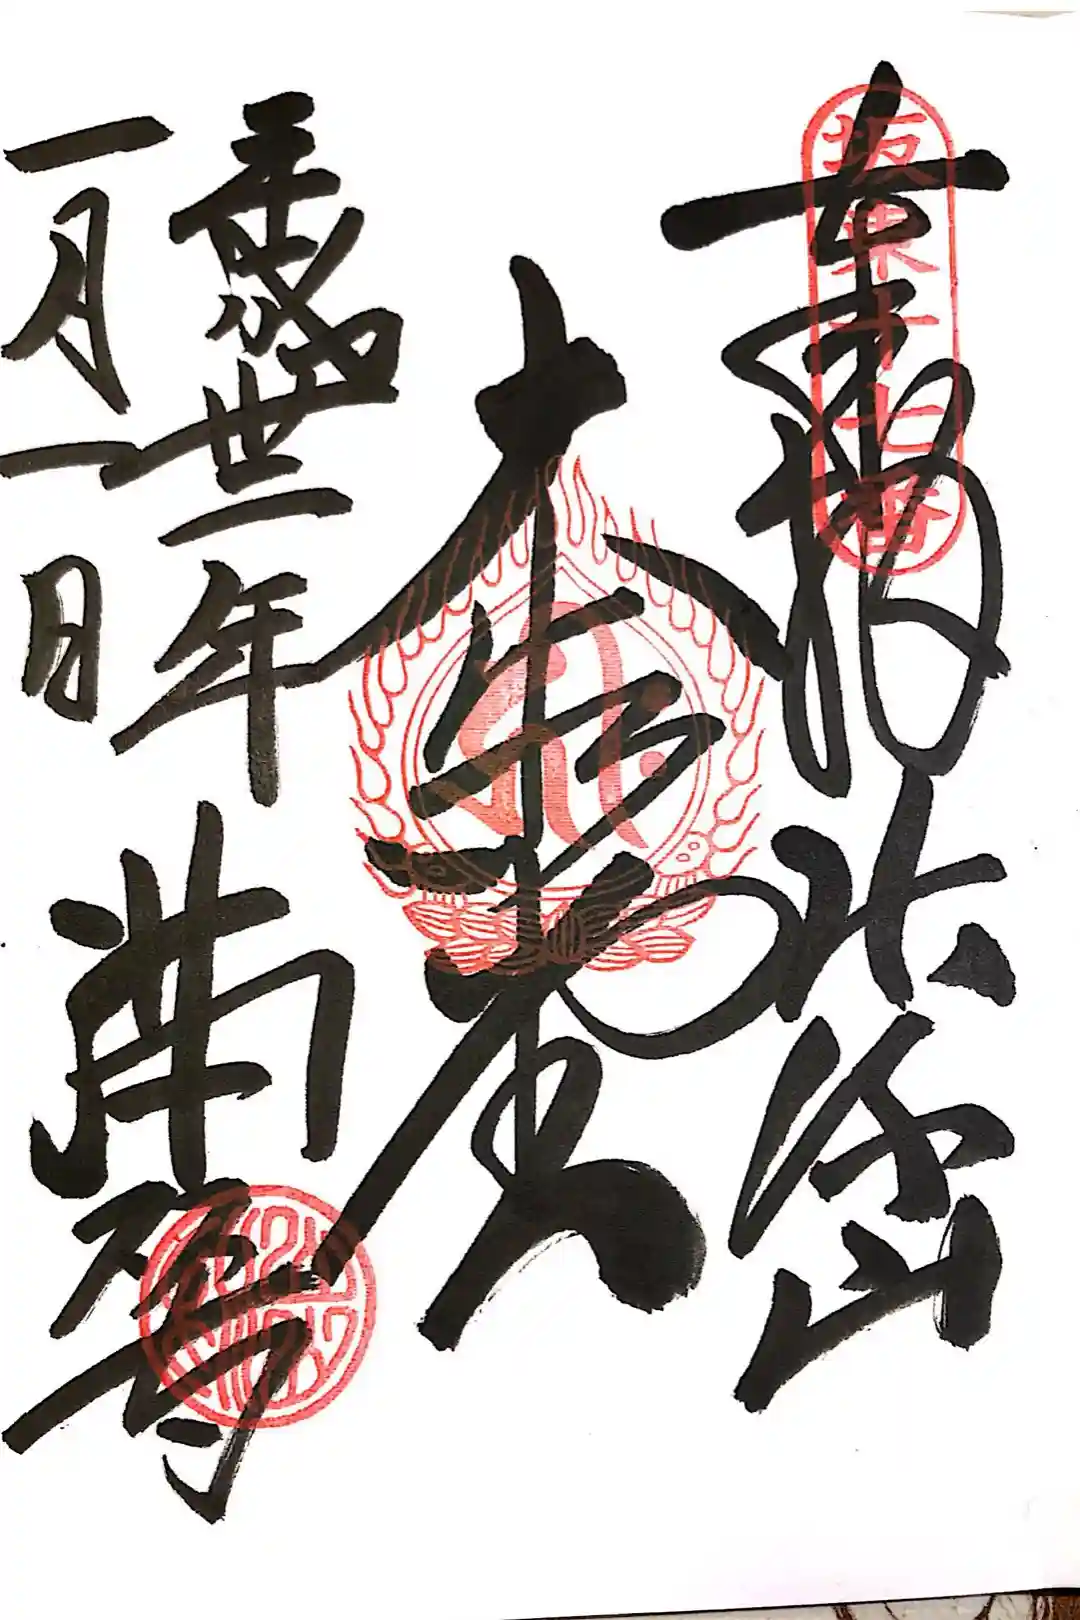 坂東十七番
奉拝 出流山
平成丗一年
一月一日
満願寺